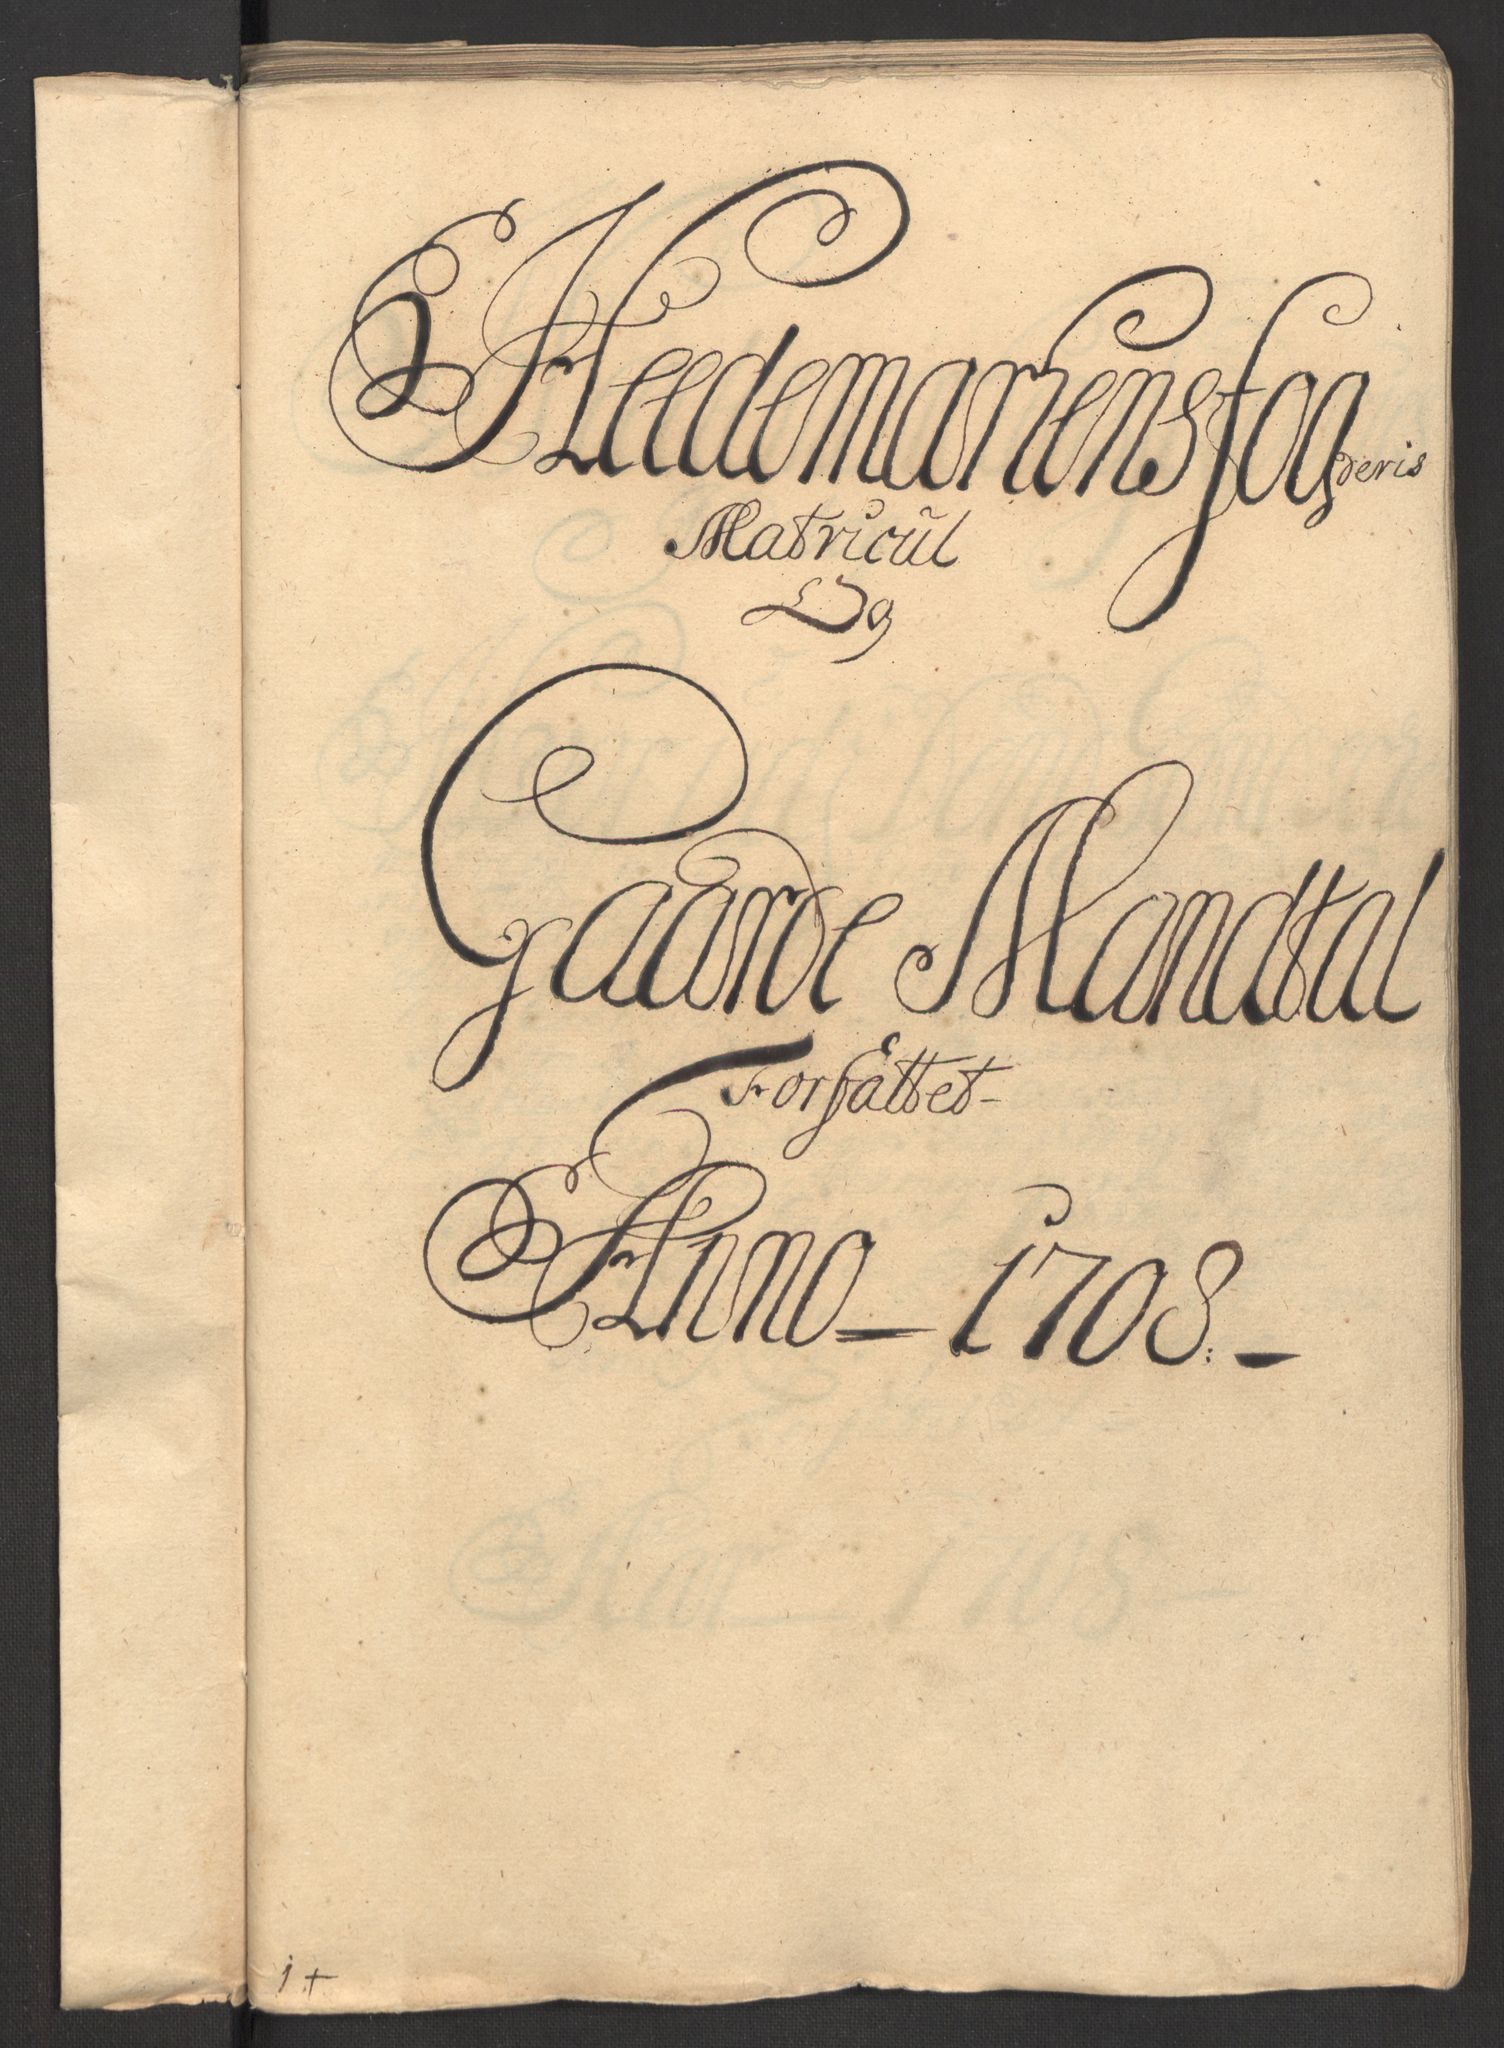 Heedemarkens fogderis
Matricul
Og
Gaarde Mandtal
Forfattet-
Anno - 1708. -
1 +